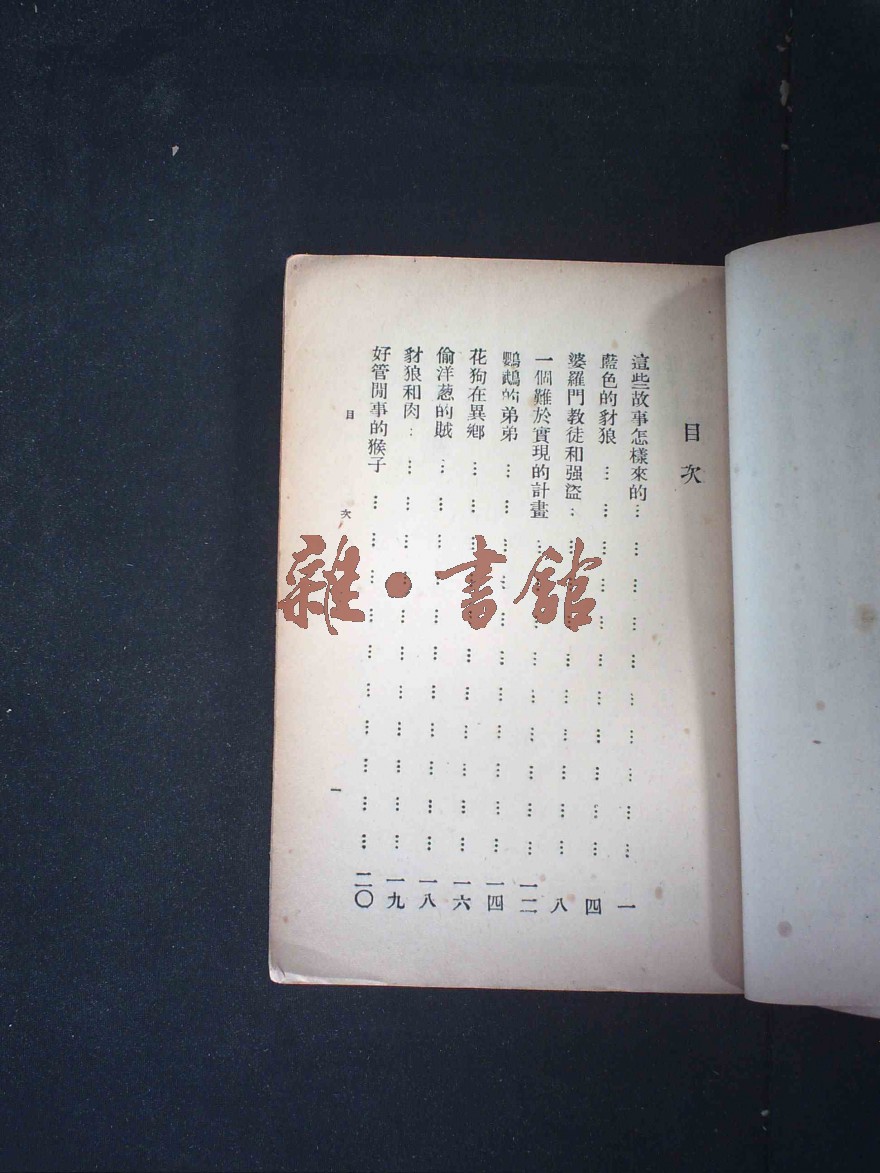 目次
這些故事怎樣來的………………………………一
藍色的豺狼………………………………四
婆羅門教徒和强盜………………………………八
一個難於實現的計畫………………………………一二
鸚鵡的弟弟………………………………一四
花狗在異鄉………………………………一六
偷洋葱的賊………………………………一八
豺狼和肉………………………………一九
好管閒事的猴子………………………………二〇
目次 一
雜·書館